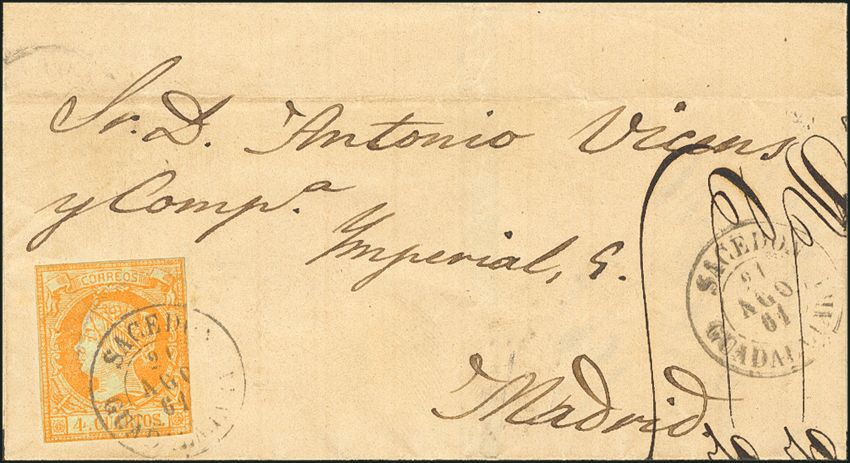 Sr. D. Antonio Vicens
y Compª.
Imperial,
Madrid
CORREOS
4 CUARTOS.
SACEDON
21
AGO
61
GUADALAJARA
SACEDON
21
AGO
61
GUADALAJARA